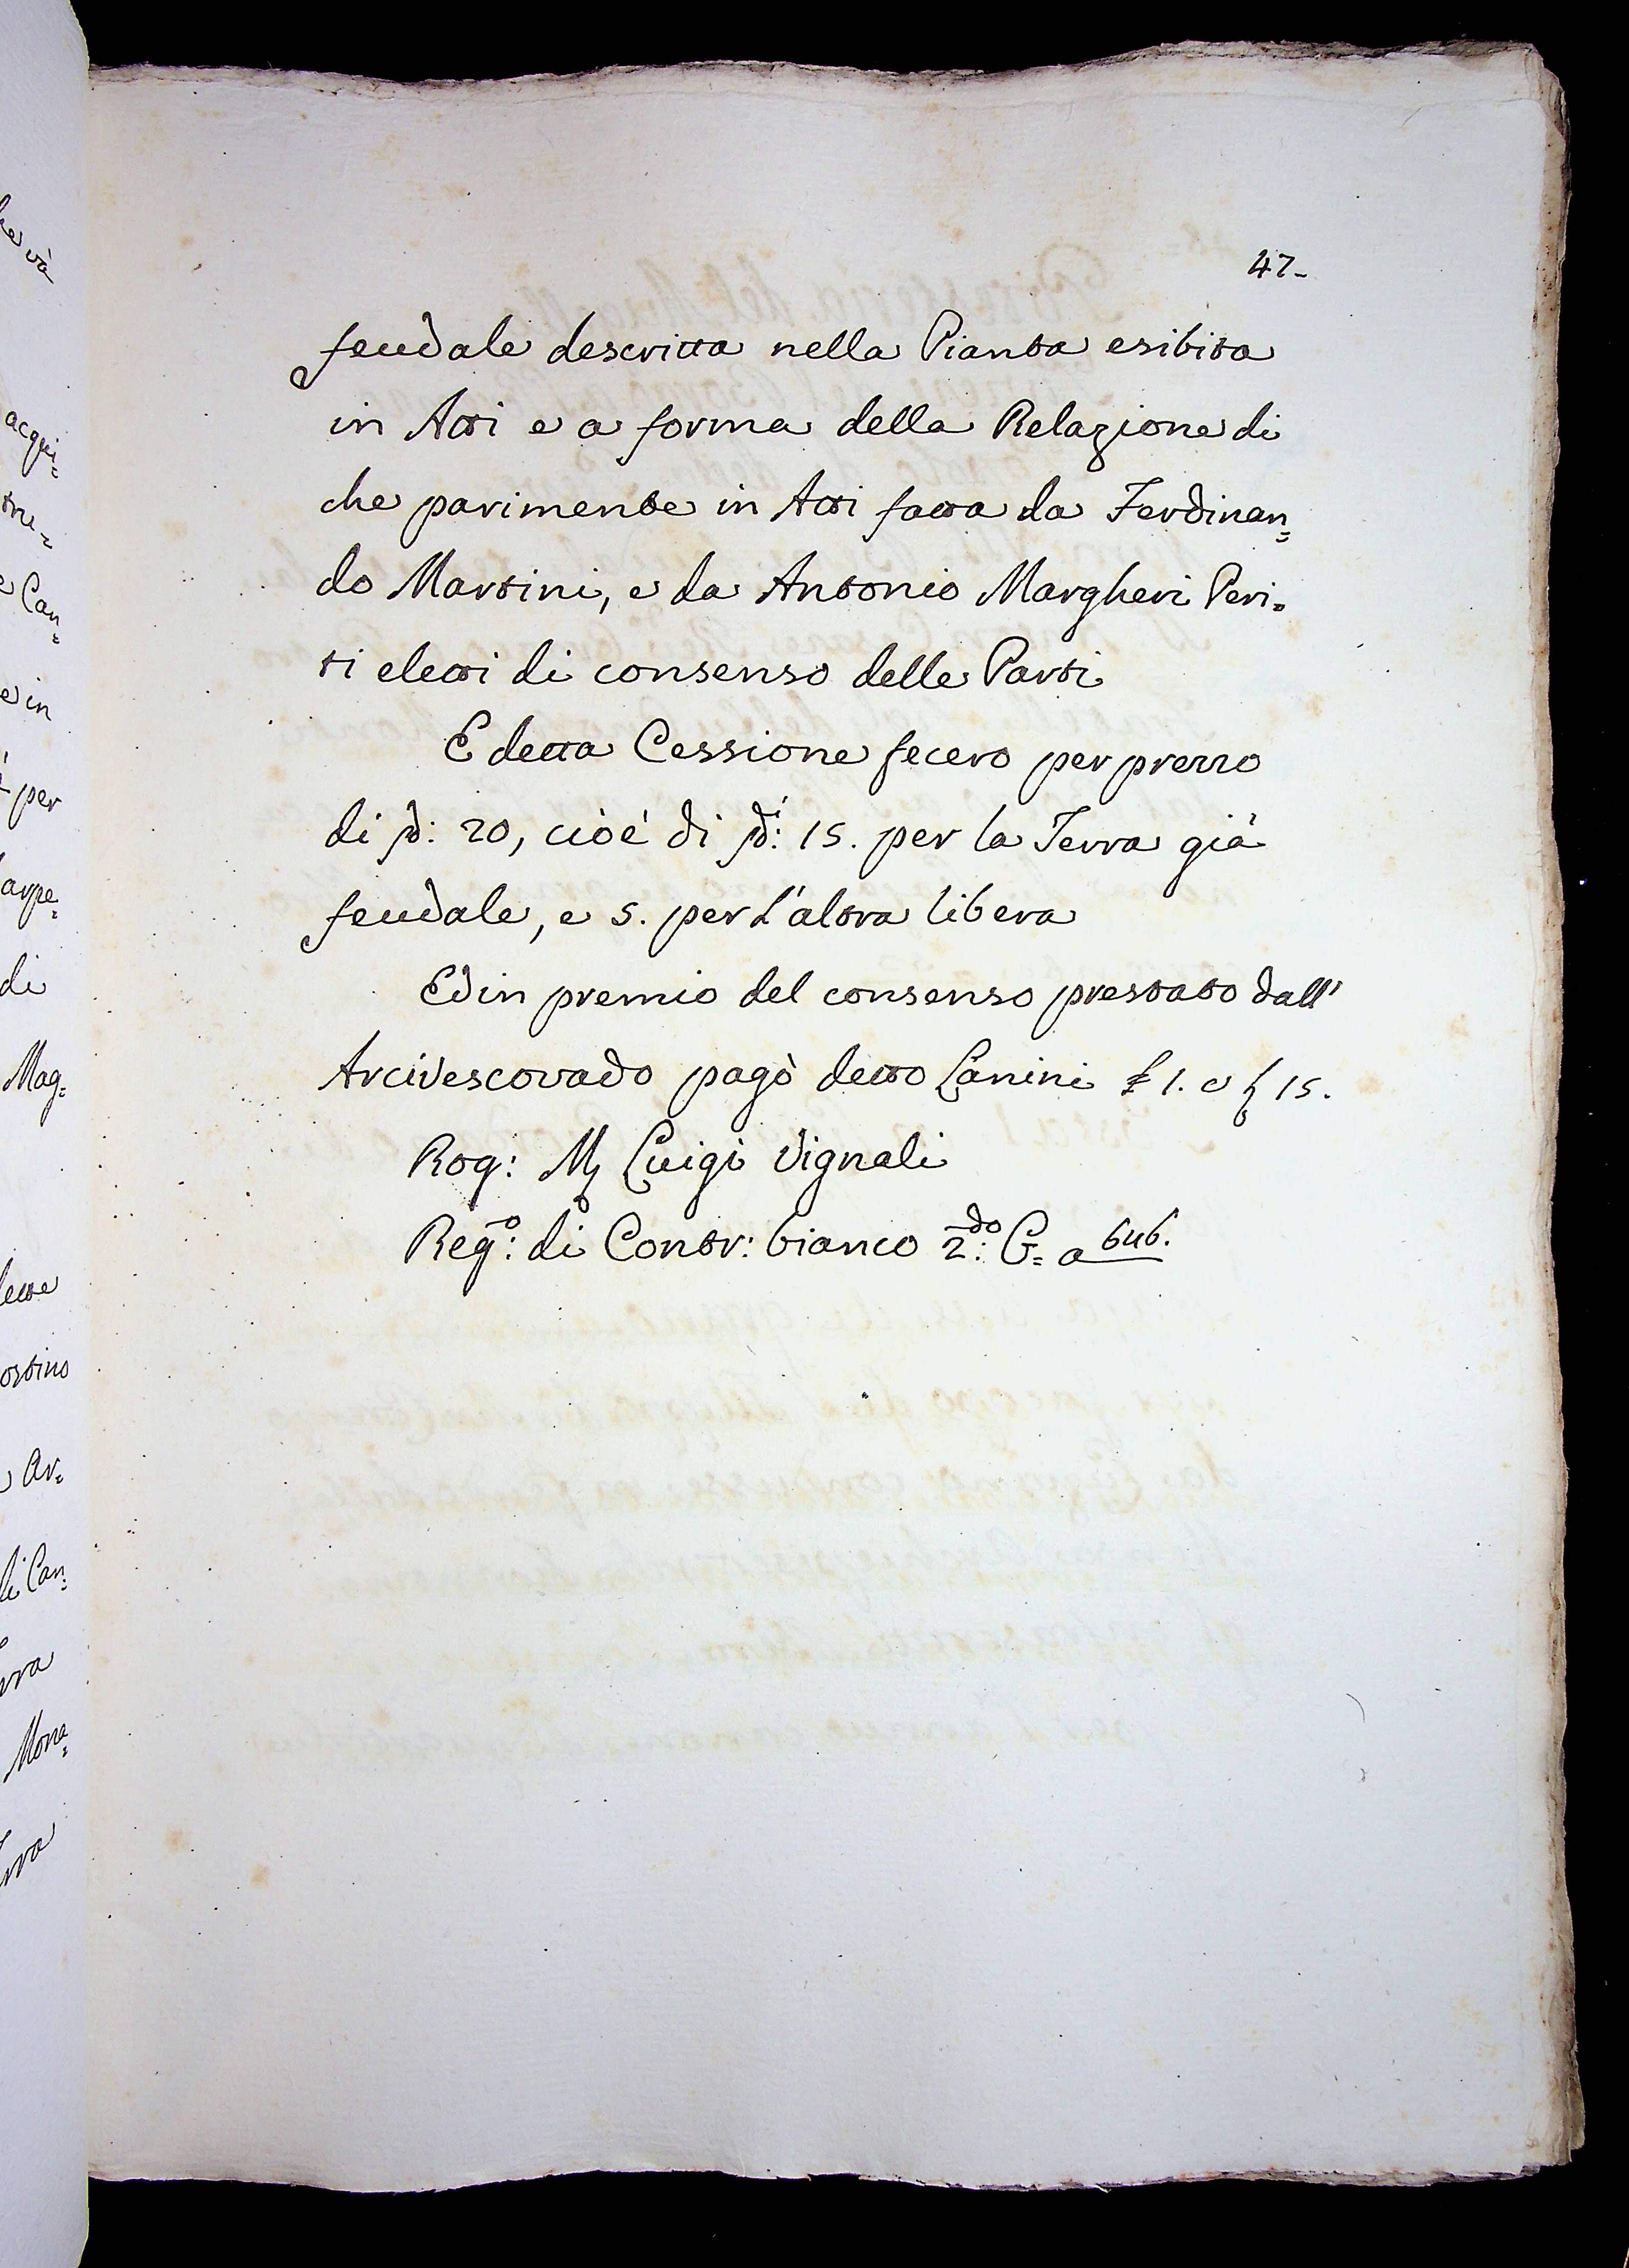 47-
feudale descritta nella Pianta esibita
in Atti e a forma della Relazione di
che parimente in Atti fatta da Ferdinan=
do Martini, e da Antonio Margheri Peri=
ti eletti di consenso delle Parti
E detta Cessione fecero per prezzo
di 20, cioè di 15. per la Terra già
feudale, e 5. per l'altra libera
Ed in premio del consenso prestato dall'
Arcivescovado pagò detto Lanini £ 1. e 15.
Rog: Luigi Vignali
Reg.o: di Contr: bianco 2.do: G= a 646.
acqui=
e Can=
e in
per
di
Mag=
Ar=
di Can=
Mona=